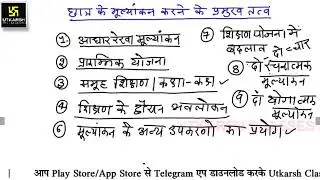 UTKARSH CLASSES
छात्र के मूल्यांकन करने के प्रमुख तत्व
① आधाररेखा मूल्यांकन
② प्रारम्भिक योजना
③ समूह शिक्षण / कक्षा-कक्ष
④ शिक्षण के दौरान अवलोकन
⑥ मूल्यांकन के अन्य उपकरणों का प्रयोग
⑦ शिक्षण योजना में बदलाव दो-चार
⑧ दो रचनात्मक मूल्यांकन
⑨ दो योगात्मक मूल्यांकन
आप Play Store/App Store से Telegram एप डाउनलोड करके Utkarsh Clas